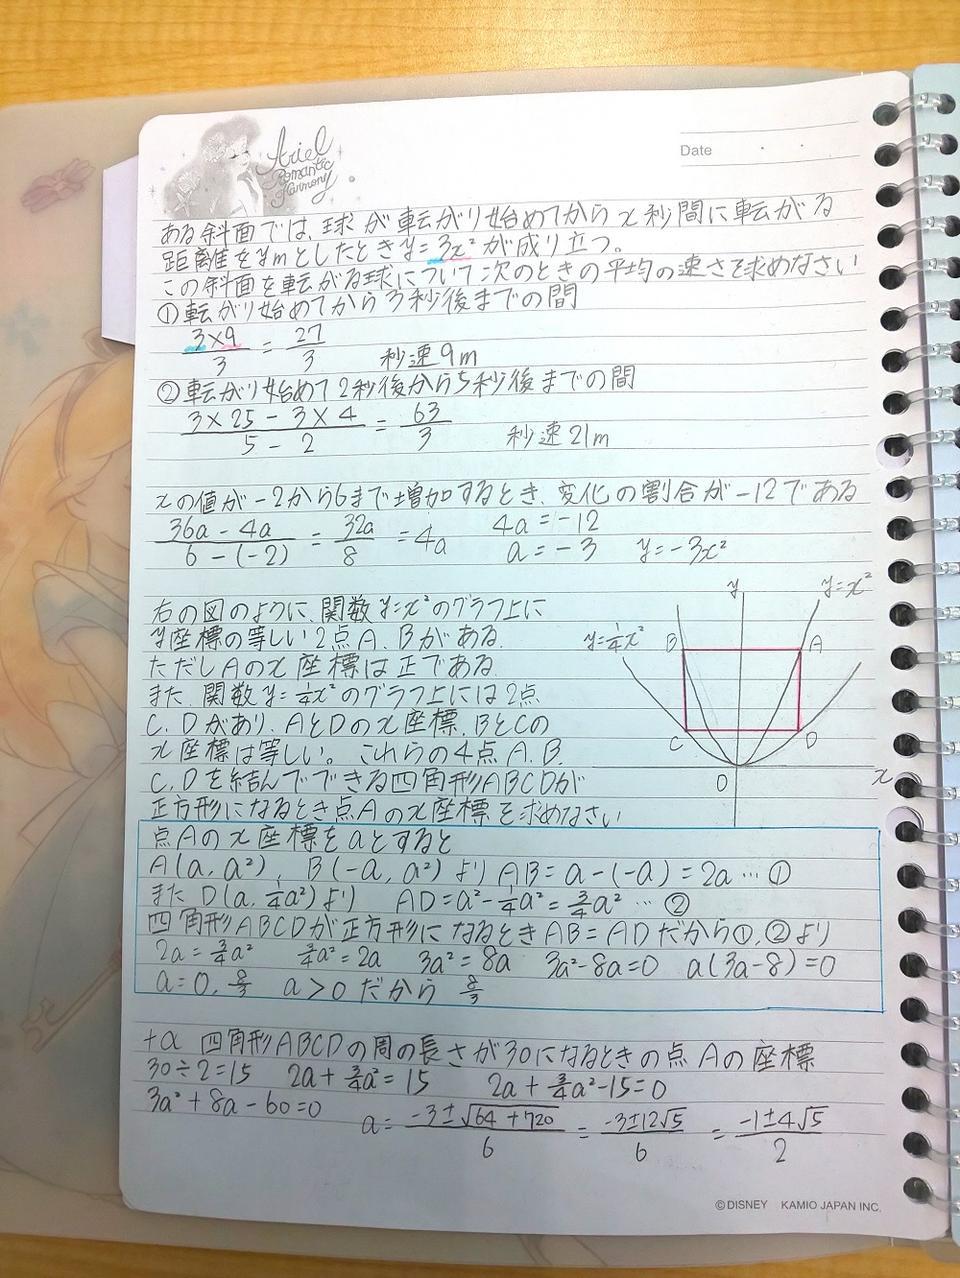 Ariel
Romantic
Harmony
Date
ある斜面では、球が転がり始めてからx秒間に転がる
距離をymとしたときy=3x²が成り立つ。
この斜面を転がる球について次のときの平均の速さを求めなさい
①転がり始めてから3秒後までの間
3×9/3 = 27/3 秒速9m
②転がり始めて2秒後から5秒後までの間
3×25-3×4/5-2 = 63/3 秒速21m
xの値が-2から6まで増加するとき、変化の割合が-12である
36a-4a/6-(-2) = 32a/8 =4a 4a=-12
a=-3 y=-3x²
右の図のように、関数y=x²のグラフ上に
y座標の等しい2点A、Bがある
ただしAのx座標は正である
また、関数y=1/4x²のグラフ上には2点
C、Dがあり、AとDのx座標、BとCの
x座標は等しい。これらの4点A、B、
C、Dを結んでできる四角形ABCDが
正方形になるとき点Aのx座標を求めなさい
y
y=x²
y=1/4x²
B
A
C
D
O
x
点Aのx座標をaとすると
A(a, a²), B(-a, a²)より AB=a-(-a)=2a…①
また D(a, 1/4a²)より AD=a²-1/4a²=3/4a² …②
四角形ABCDが正方形になるときAB=ADだから①、②より
2a=3/4a² 3/4a²=2a 3a²=8a 3a²-8a=0 a(3a-8)=0
a=0, 8/3 a>0だから 8/3
+α 四角形ABCDの周の長さが30になるときの点Aの座標
30÷2=15 2a+3/4a²=15 2a+3/4a²-15=0
3a²+8a-60=0
a= -3±√64+720/6 = -3±12√5/6 = -1±4√5/2
©DISNEY KAMIO JAPAN INC.